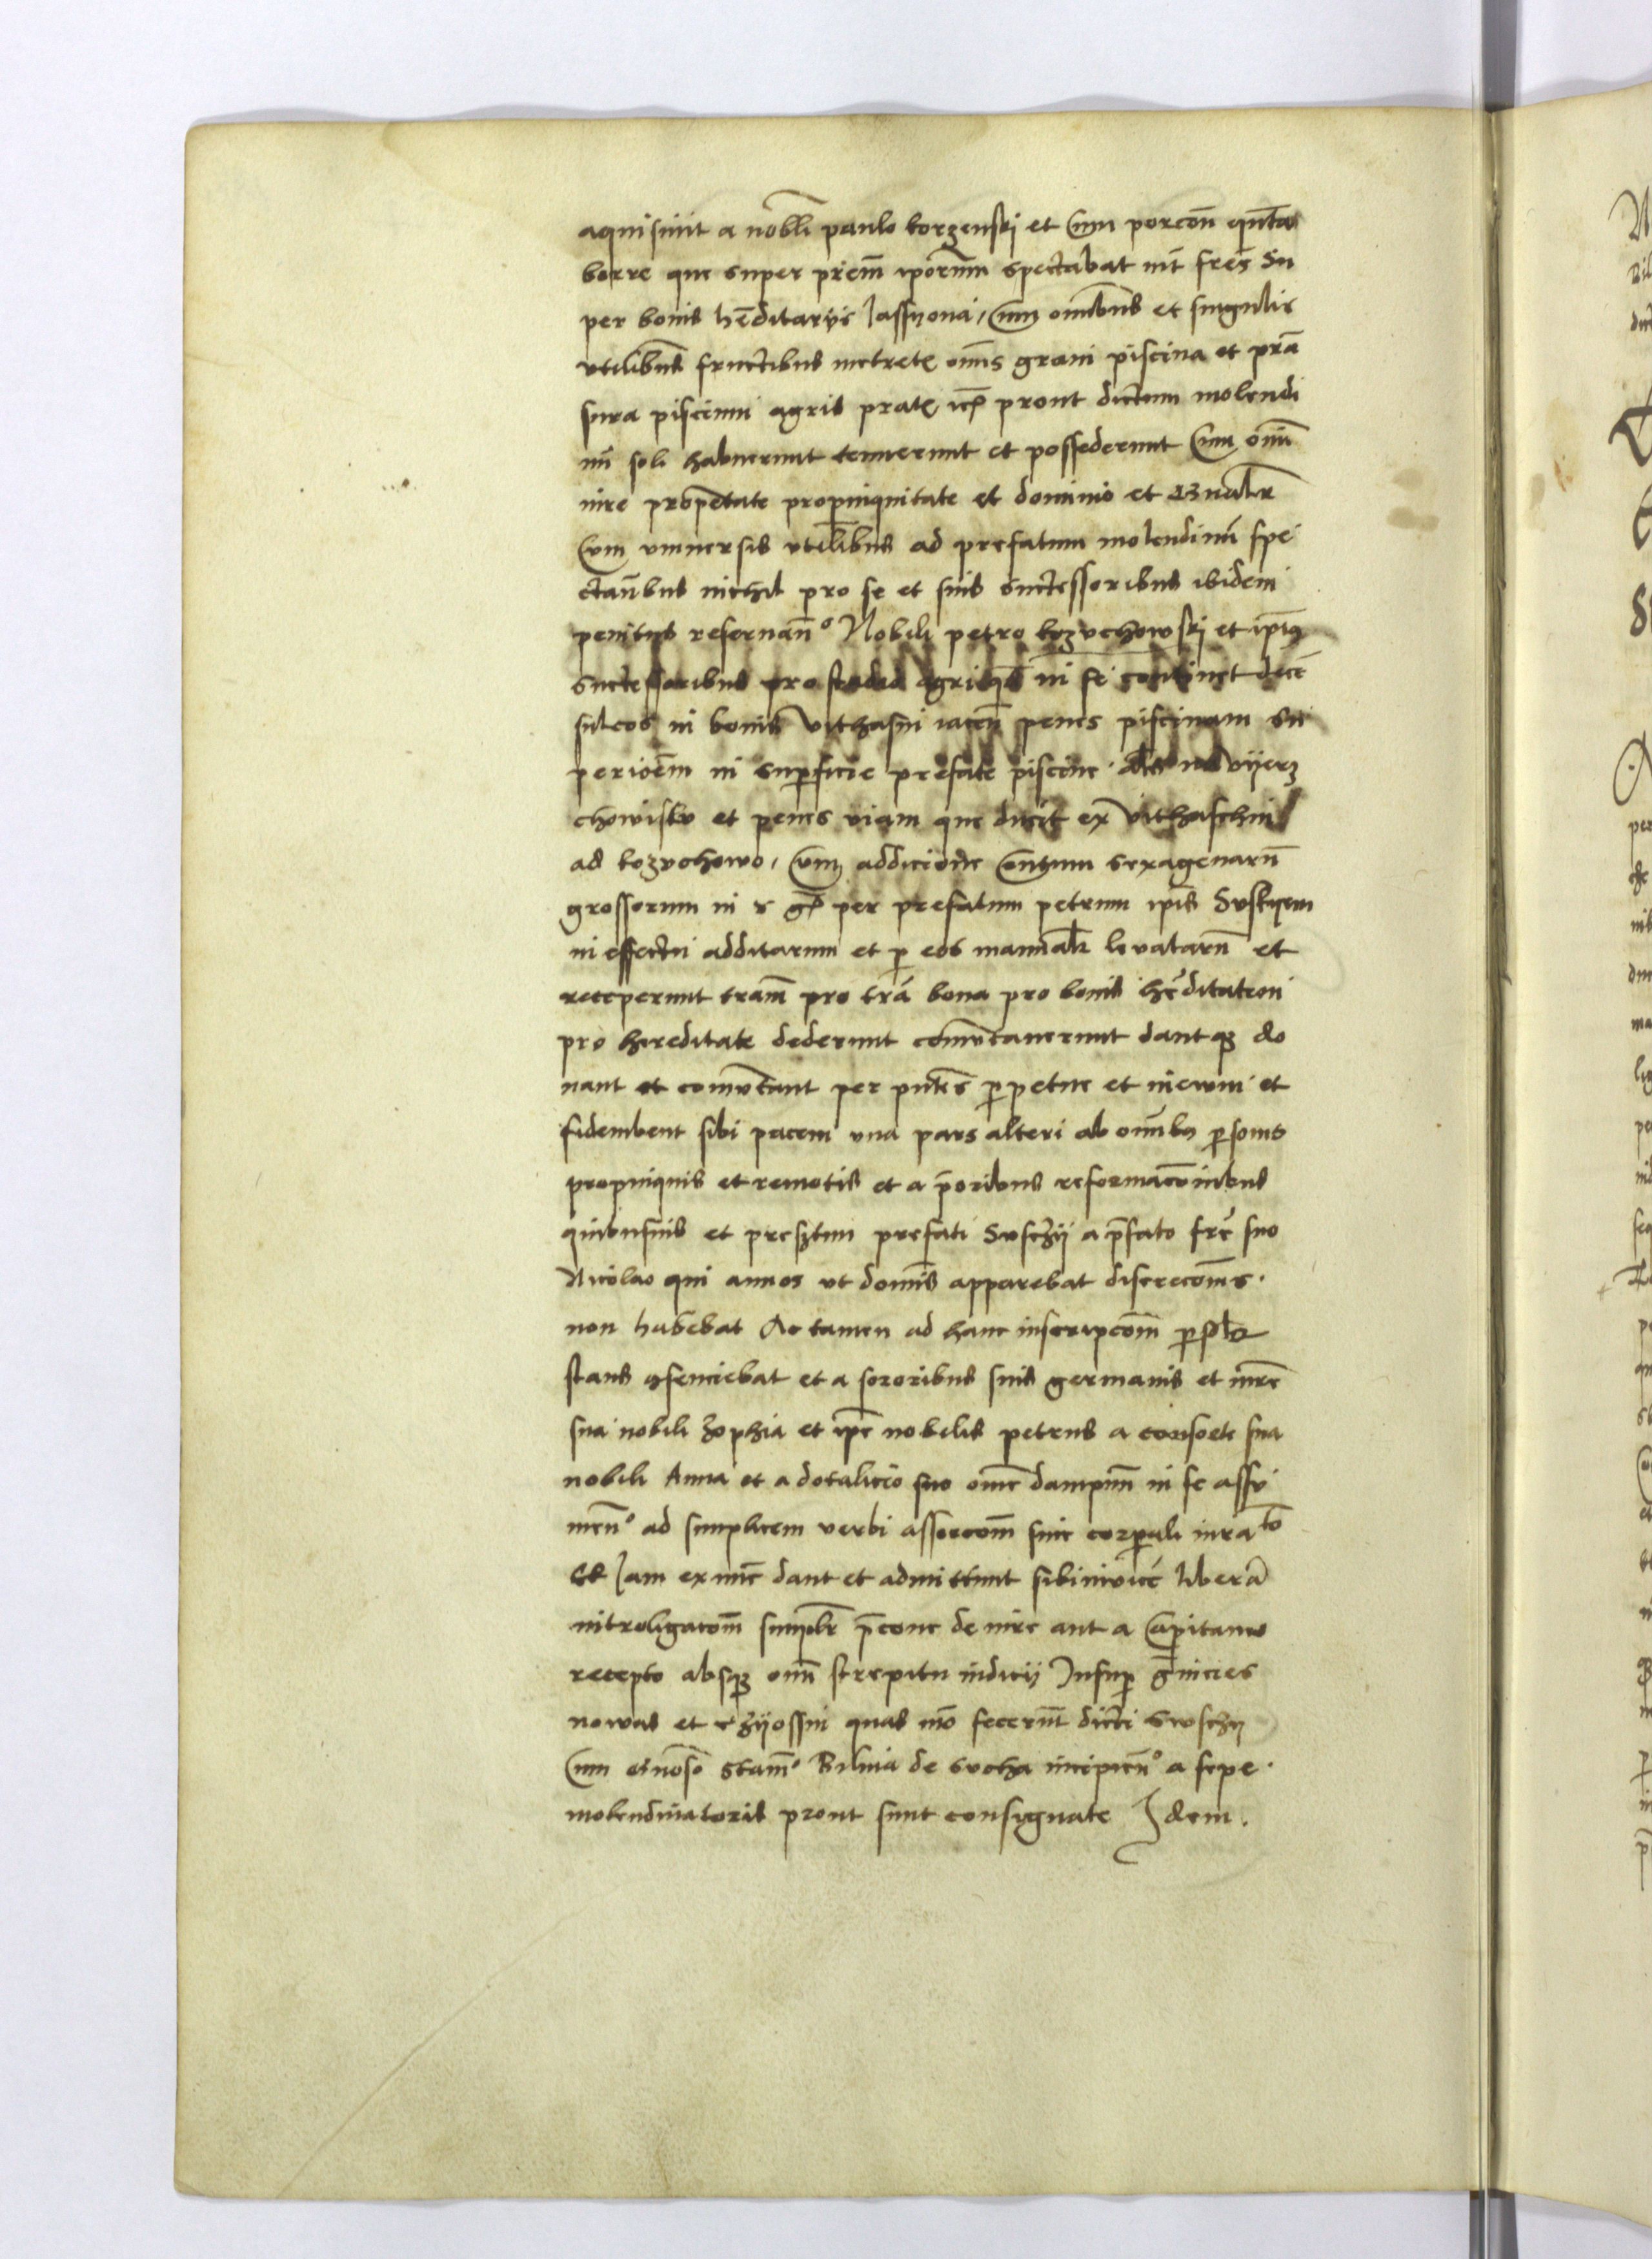 aquisiuit a nobli paulo torzenski et Cum porcon qūta
borre que super prīem iporum spectabat int fres Su
per bonis hēditariis Jassyona, Cum omībus et singulis
vtilibus fructibus metrete omīs grani piscina et pra
sura piscium agris prate prout dictum molendi
nū soli habuerunt tenuerunt et possederunt Cum omī
iure propetate propinquitate et dominio et
Cum vniuersis vtilibus ad prefatum molendinū spe
ctanbus nichil pro se et suis successoribus ibidem
penitus reseruan° Nobili petro kozuchowski et ipius
successoribus pro agri in se continet decē
sulcos in bonis Vithasni iacen penes piscinam su
periorem in superficie prefate piscine als na vijerz
chowisku et penes viam que ducit ex Vithaschin
ad kozuchowo, Cum addicione Centum sexagenarū
grossorum in per prefatum petrum ipis Suskyem
in effectu additarum et p eos manualr leuatarū et
receperunt tram pro tra bona pro bonis hēditatem
pro hereditate dederunt comutauerunt dantq do
nant et comutant per pntes ppetue et in ewm et
fidembent sibi pacem vna pars alteri ab omībus psonis
propinquis et remotis et a prioribus reformaconibus
quibusuis et presertim prefati Suschij a pfato fre suo
Nicolao qui annos vt domīs apparebat discrecoms.
non habebat Ac tamen ad hanc inscripcom psolr
stans 9senciebat et a sororibus suis germanis et mre
sua nobili Zophia et ipe nobilis petrus a consorte sua
nobili Anna et a dotalicio suo ome dampnm in se assu
men° ad simplicem verbi assercom sine corporali iurato
Et Jam exnuc dant et admittunt sibiinuice libera
intreligacom simplr pcone de iure aut a Capitaneo
recepto absq omī strepitu iudicij Insup gnicies
nowas et rzijossni quas mō fecerūt dicti Swschy
Cum gnoso Stam° Bilina de sucha incipien° a sepe.
molendinatoris prout sunt consignate Jdem.